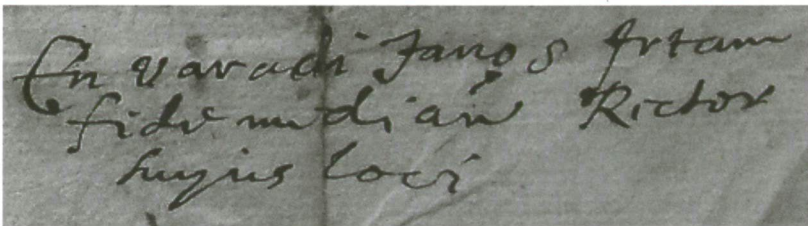 En Varadi Janos Irtam
fide mediań Rector
hujus loci